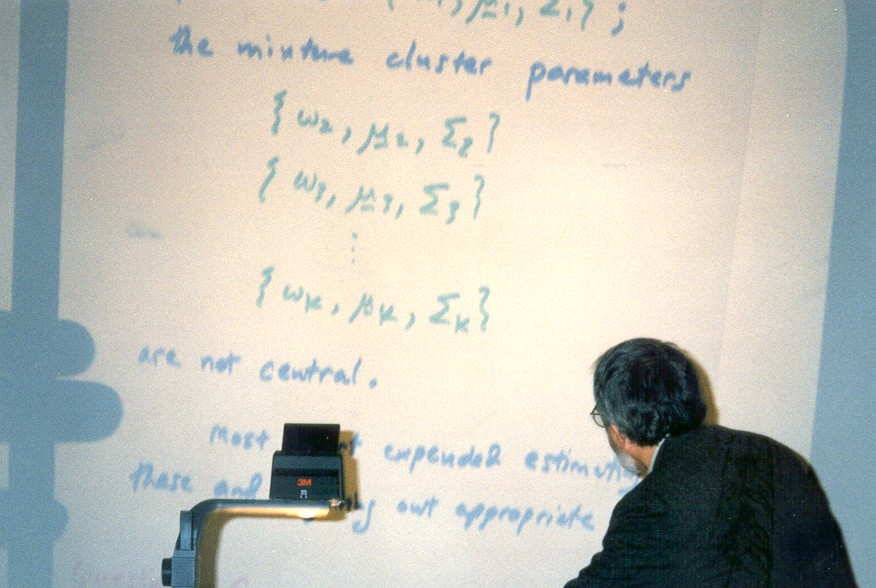 μ₁, Σ₁} ;
the mixture cluster parameters
{ ω₂, μ₂, Σ₂}
{ ω₃, μ₃, Σ₃}
⋮
{ ωK, μK, ΣK}
are not central.
Most expended
these and out appropriate
3M